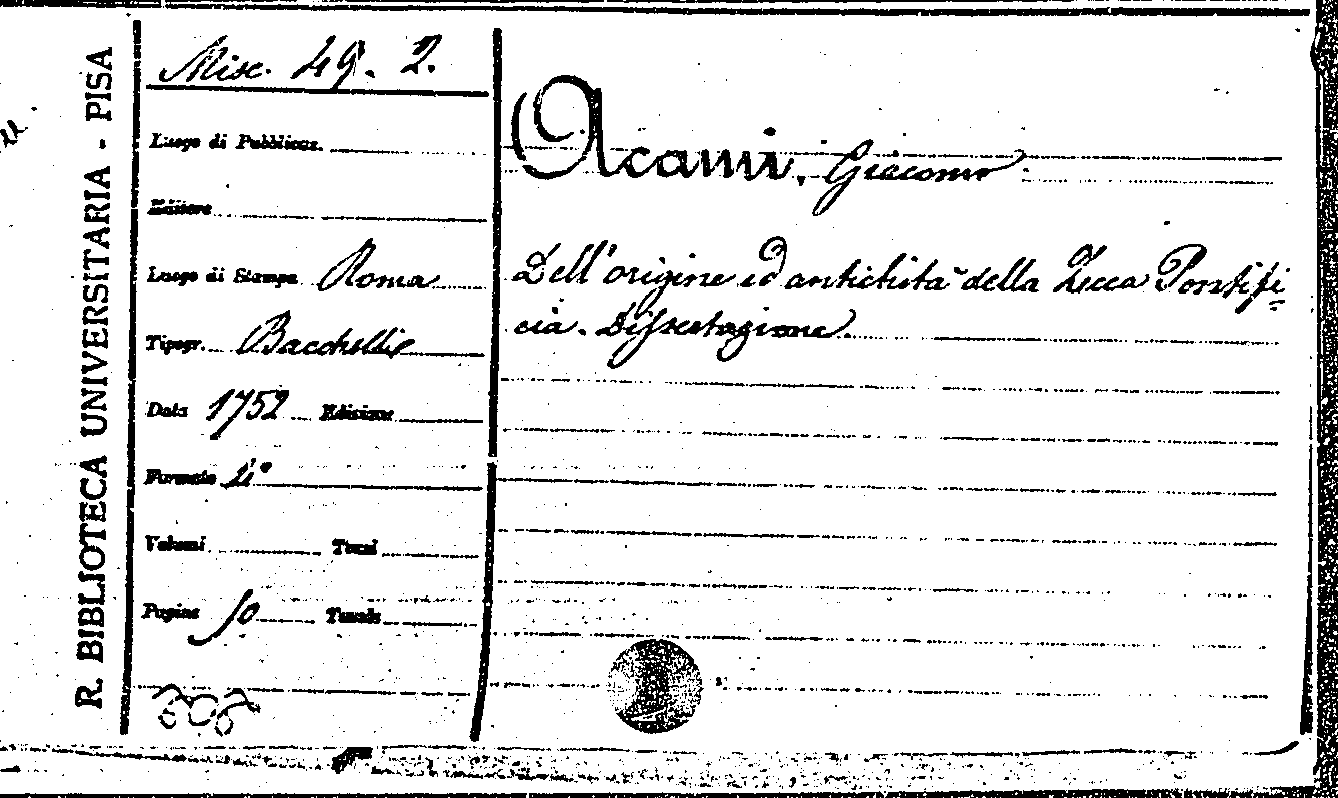 R. BIBLIOTECA UNIVERSITARIA - PISA
Misc. 49. 2.
Luogo di Pubblicaz.
Editore
Luogo di Stampa Roma
Tipogr. Bacchelli
Data 1752 Edizione
Formato 4°
Volumi Tomi
Pagine 50 Tavole
Acami, Giacomo
Dell'origine ed antichità della Zecca Pontifi-
cia. Dissertazione.